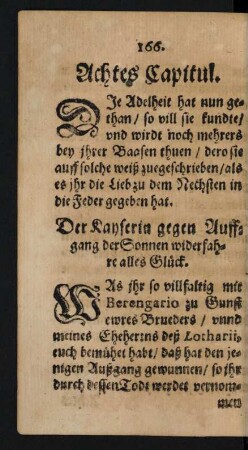 166.
Achtes Capitul.
DIe Adelheit hat nun ge-
than/ so vill sie kundte/
vnd wirdt noch mehrers
bey jhrer Baasen thuen/ dero sie
auff solche weiß zuegeschrieben/ als
es jhr die Lieb zu dem Nechsten in
die Feder gegeben hat.
Der Kayserin gegen Auff-
gang der Sonnen widerfah-
re alles Glück.
WAs ihr so villfaltig mit
Berengario zu Gunst
ewres Brueders/ vnnd
meines Eheherrns deß Lotharii,
euch bemühet habt/ daß hat den je-
nigen Außgang gewunnen/ so ihr
durch dessen Todt werdet vernom-
men